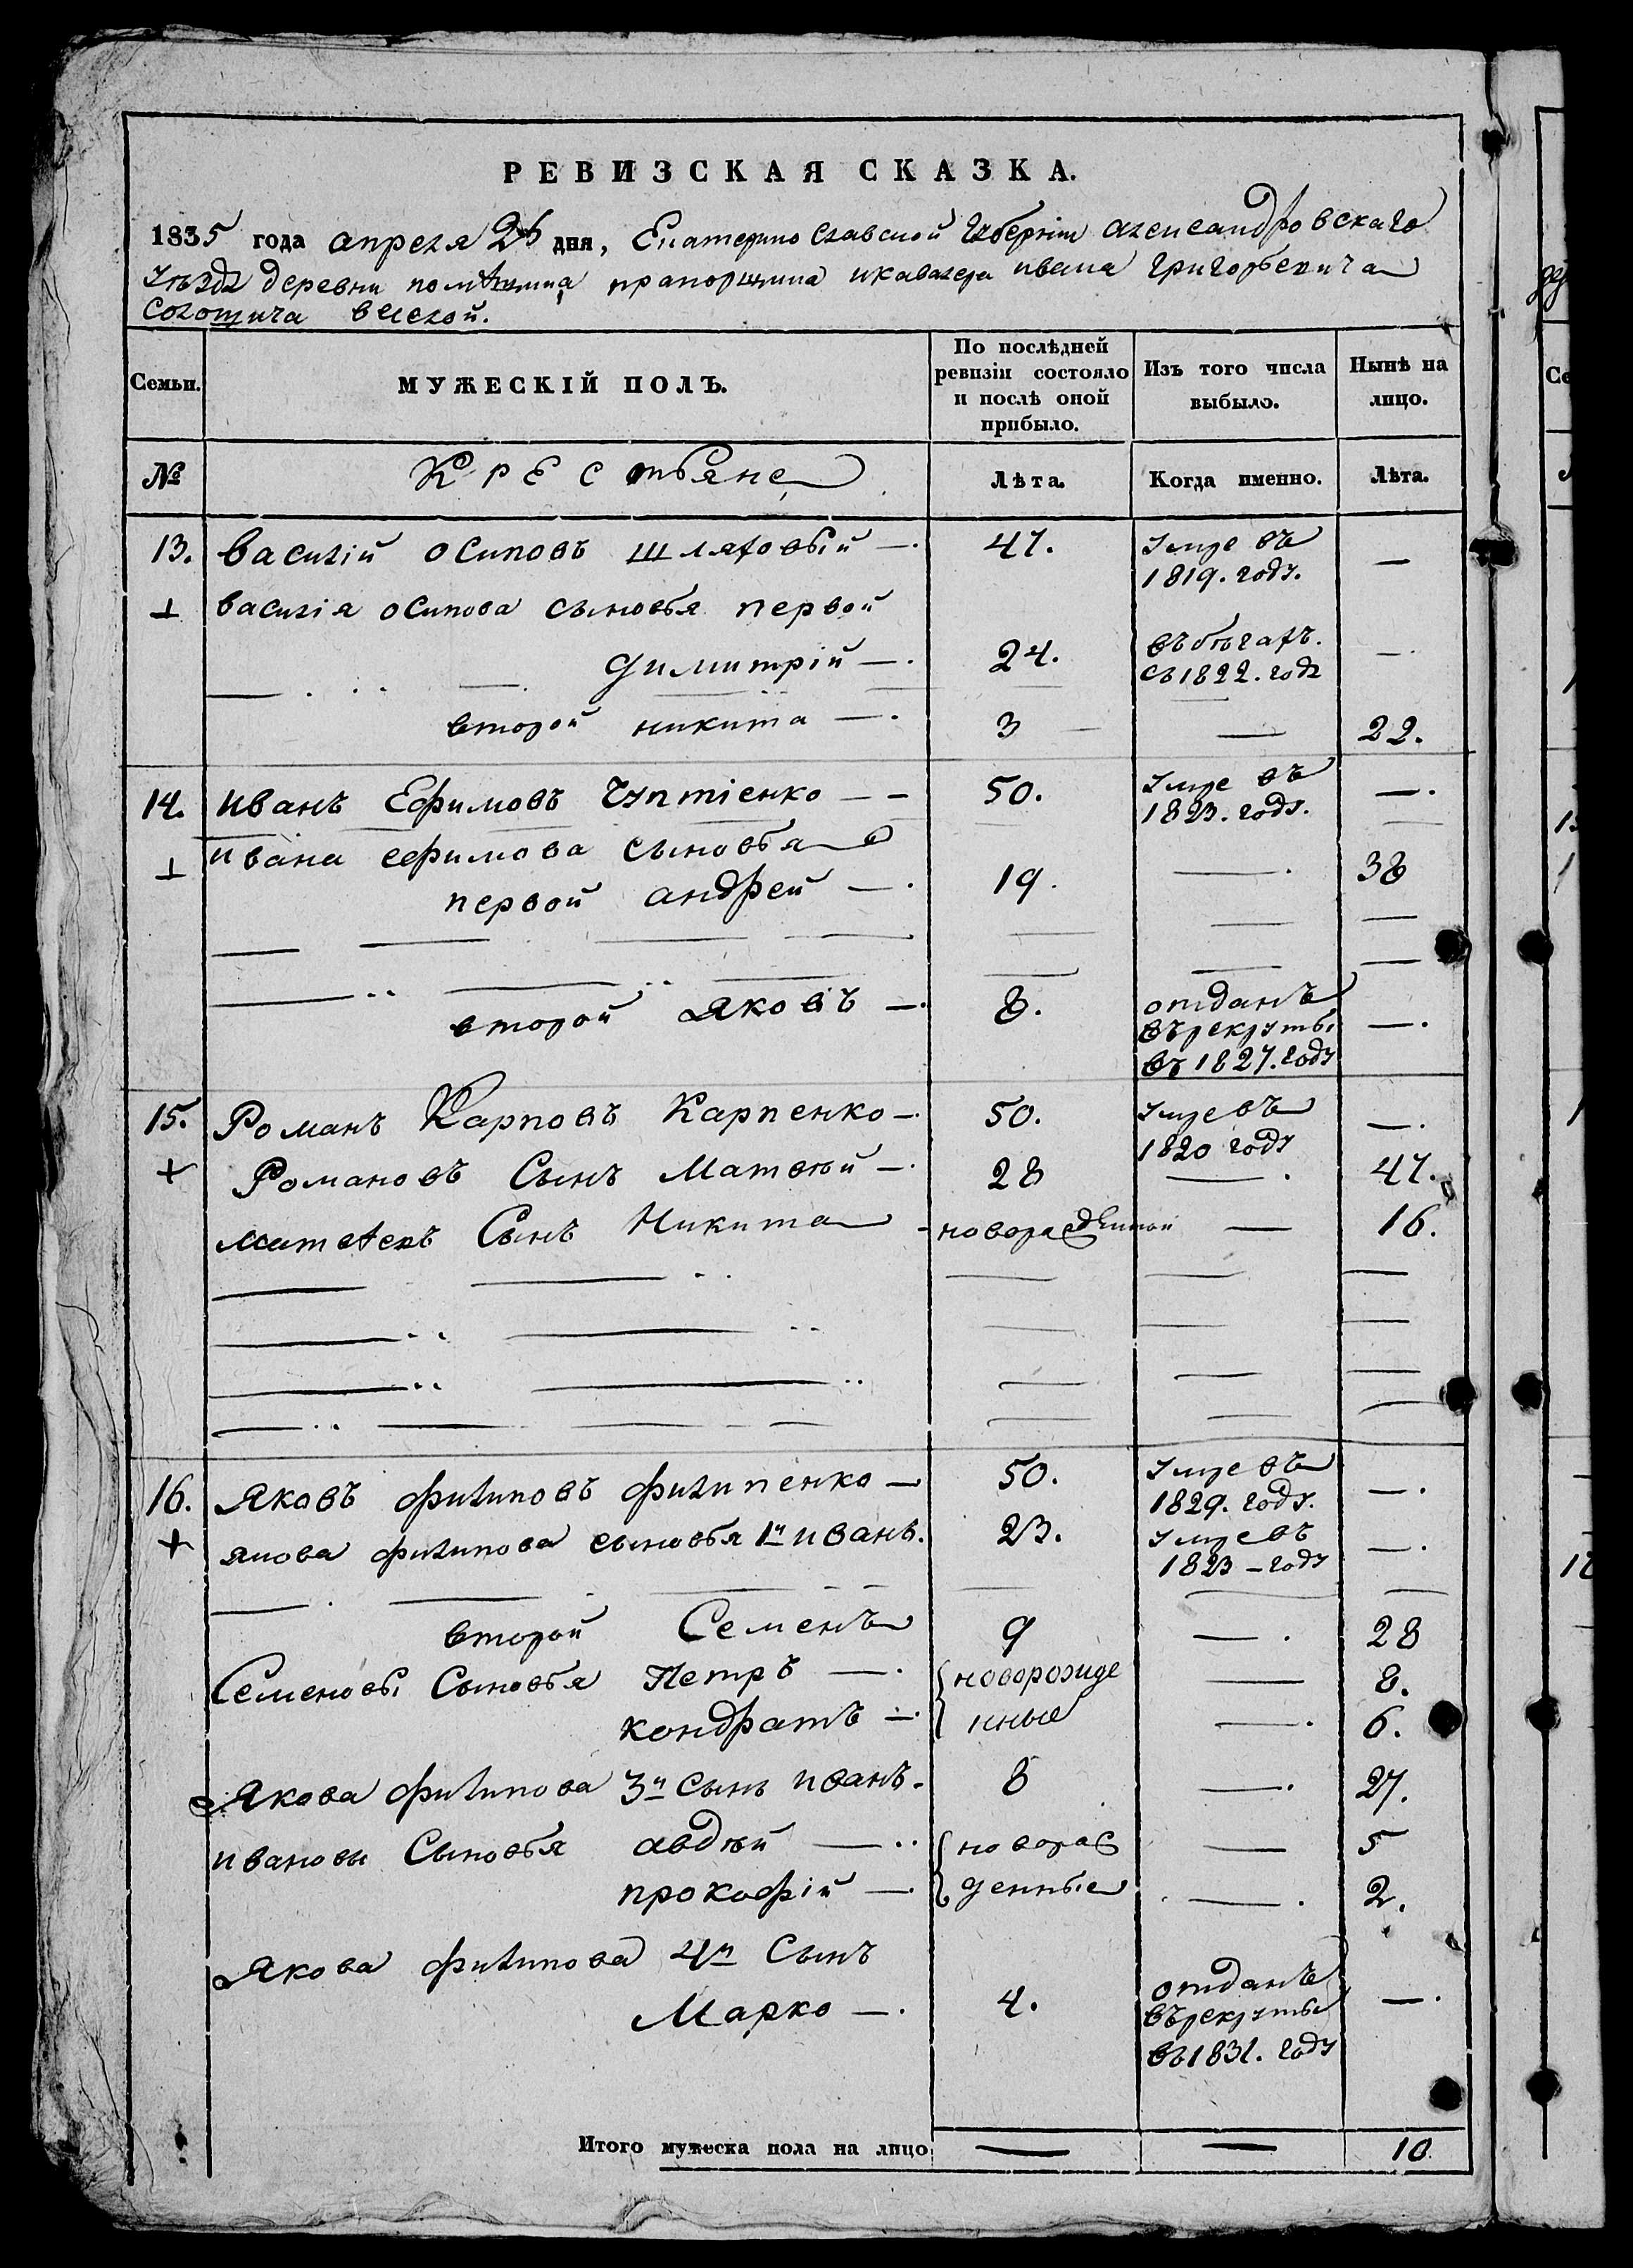 РЕВИЗСКАЯ СКАЗКА.
1835 года апреля 26 дня, Екатеринославской Губерніи александровскаго
уезда деревни помѣщика прапорщика икавалера ивана григорьевича
вской.
Семьи.
МУЖЕСКІЙ ПОЛЪ.
По послѣдней ревизіи состояло и послѣ оной прибыло.
Изъ того числа выбыло.
Нынѣ на лицо.
№ Крестьяне Лѣта. Когда именно. Лѣта.
13. Василій осиповъ шляховый —. 47. умре въ —
1819. году.
василія осипова сыновья первой
димитрій —. 24. въбѣгахъ. —.
съ1822. года
второй никита —. 3 — 22.
14. иванъ Ефимовъ — — 50. умре въ —.
1823. году.
ивана ефимова сыновья
первой андрей —. 19. —. 38
второй Яковъ —. 8. отданъ —.
върекруты
въ 1827. году
15. Романъ Карповъ Карпенко —. 50. умревъ —.
1820 году
+ Романовъ Сынъ Матвѣй —. 28 —. 47.
матвѣевъ Сынъ Никита — 16.
16. Яковъ филиповъ филипенко — 50. умревъ —.
1829. году.
+ якова филипова сыновья 1й иванъ. 23. умревъ —.
1823 – году
второй Семенъ 9 —. 28
Семеновы Сыновья Петръ —. новорожде — 8.
кондратъ —. нные —. 6.
Якова филипова 3й сынъ иванъ. 8 —. 27.
ивановы Сыновья авдѣй —.. новорас — 5
прокофій —. денные —. 2.
Якова филипова 4й Сынъ
Марко —. 4. отданъ —.
върекруты
въ1831. году
Итого мужеска пола на лицо — — 10.